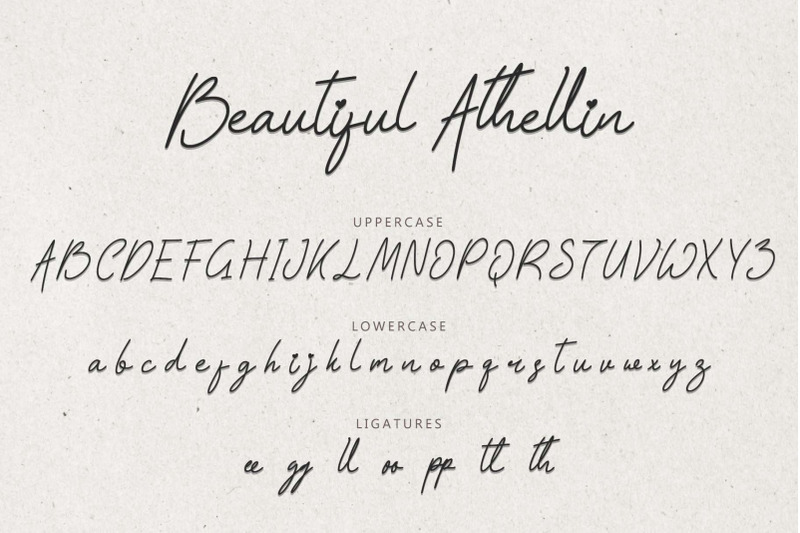 Beautiful Athellin
UPPERCASE
ABCDEFGHIJKLMNOPQRSTUVWXYZ
LOWERCASE
abcdefghijklmnopqrstuvwxyz
LIGATURES
ee gg ll oo pp tt th